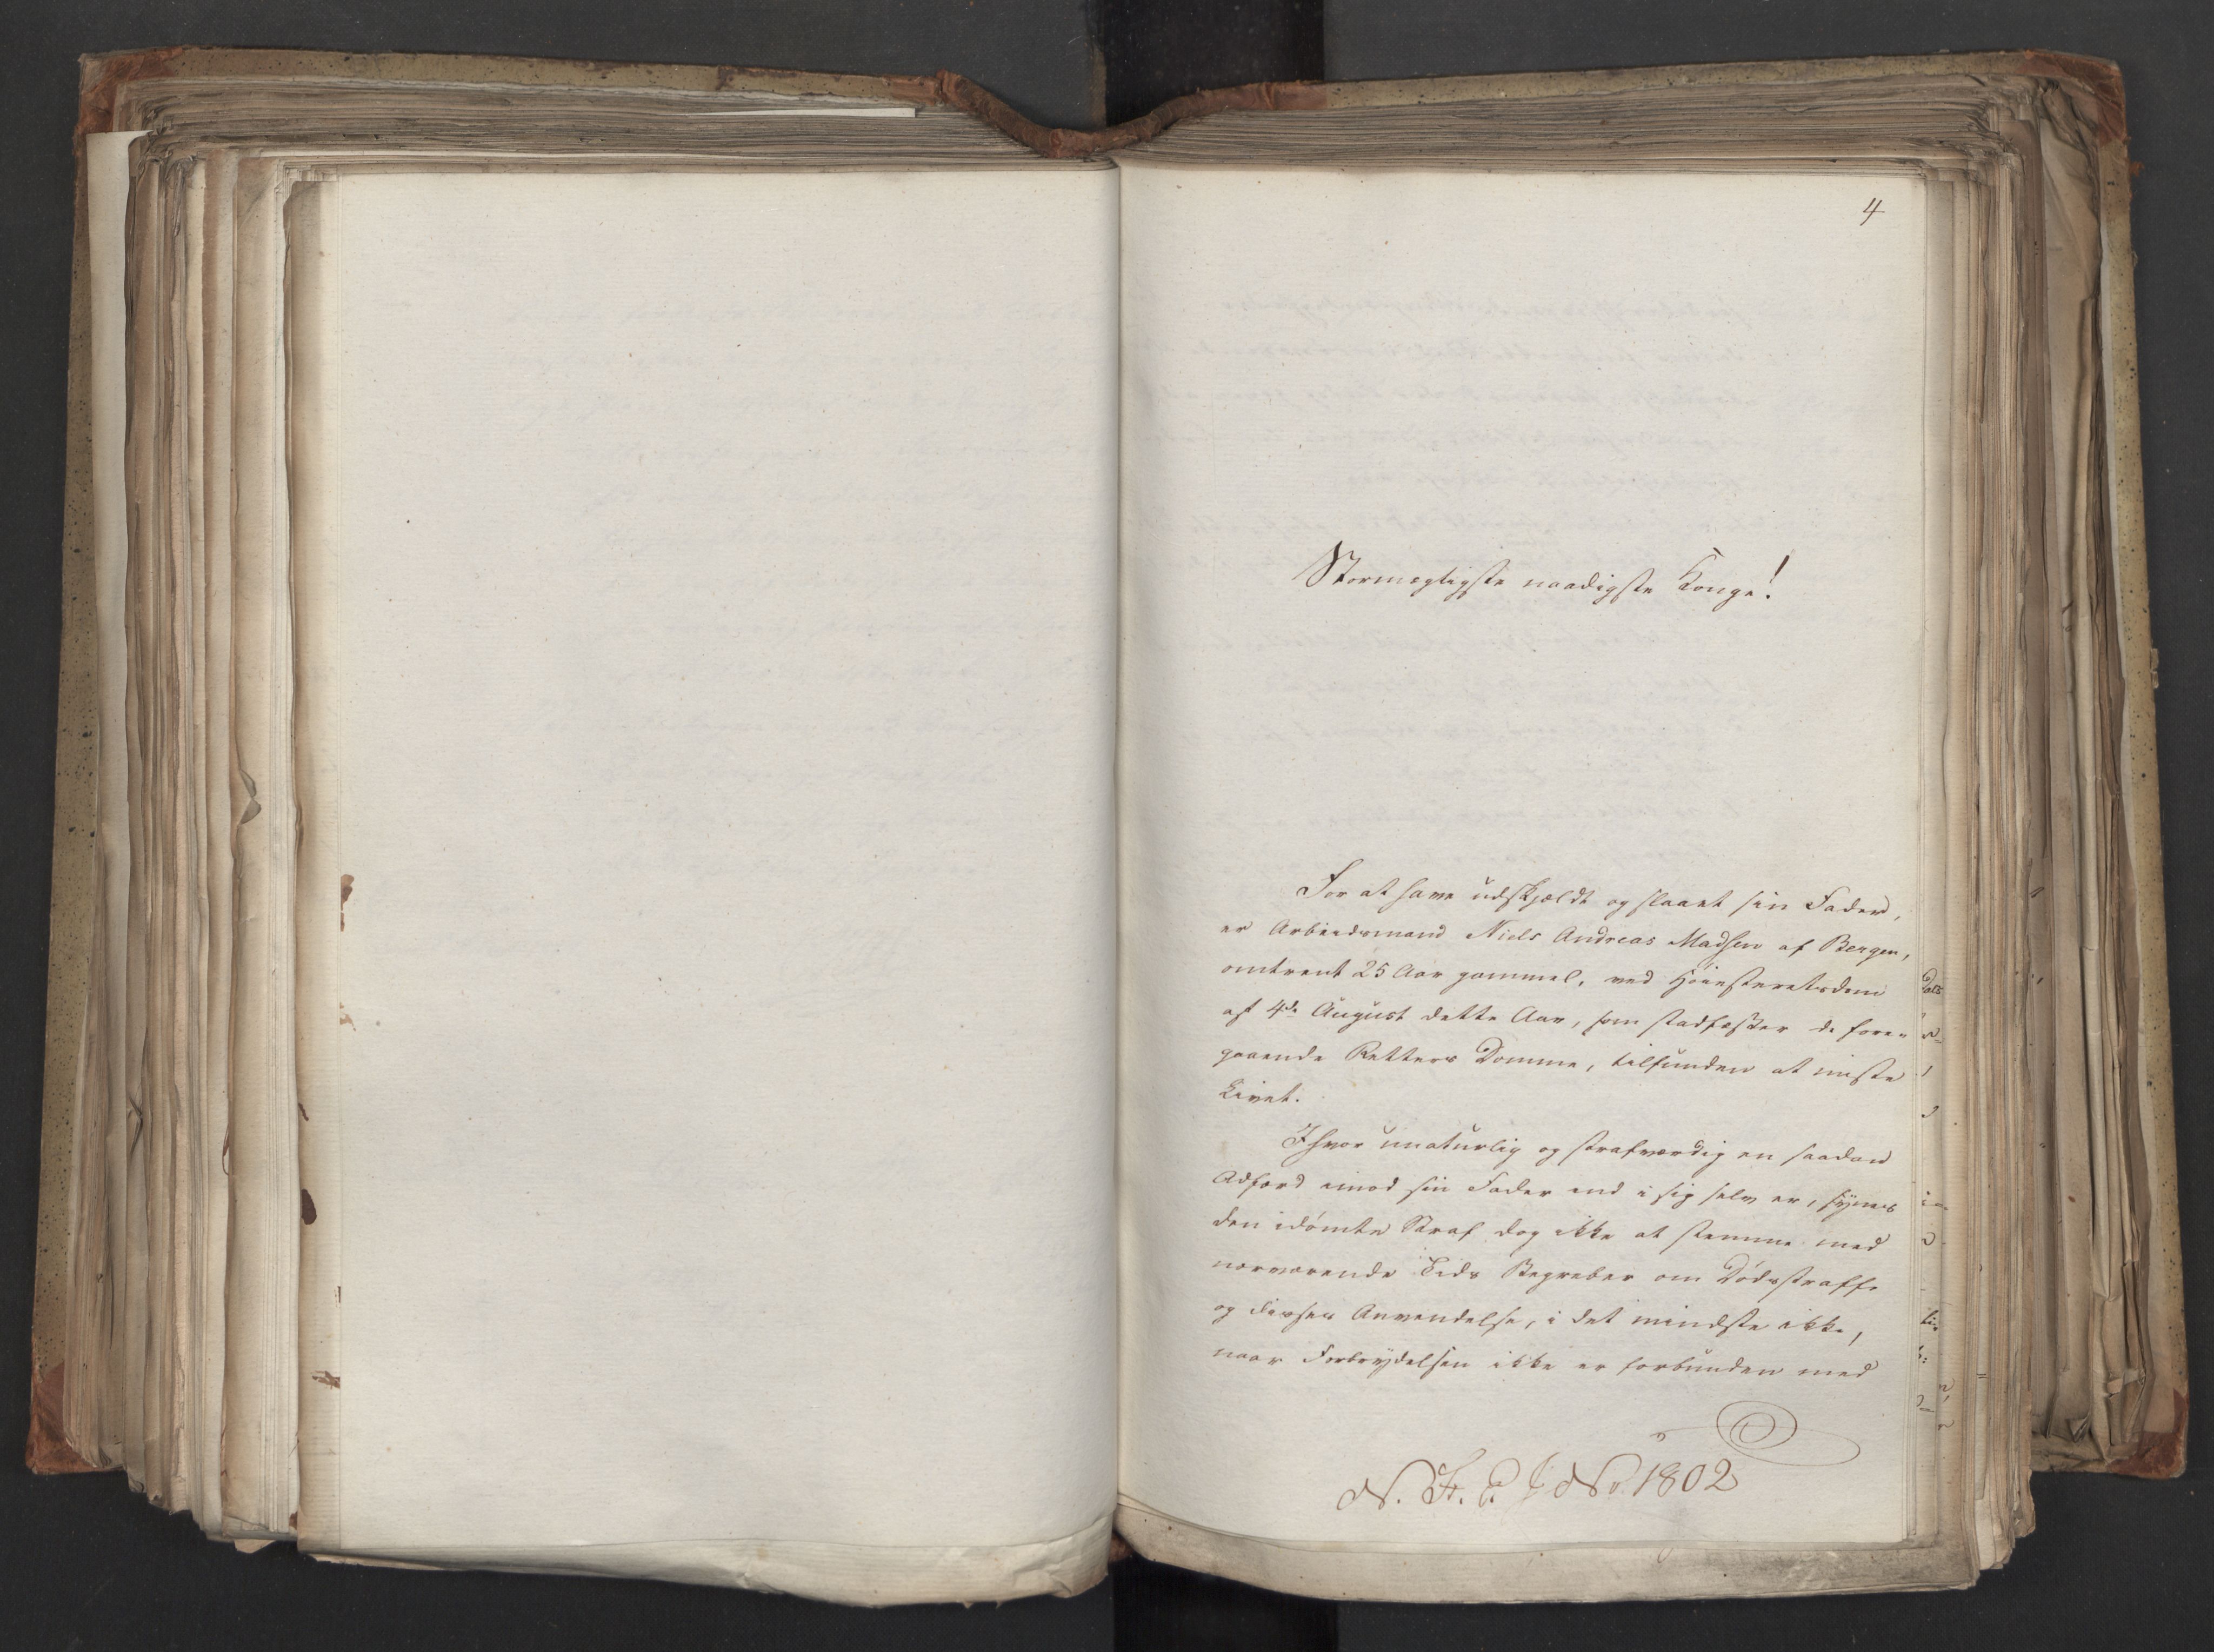 4
Stormægtigste naadigste Konge!
For at have udskjældt og slaaet sin Fader,
er Arbeidsmand Niels Andreas Madsen af Bergen,
omtrent 25 Aar gammel, ved Høiesteretsdom
af 4de August dette Aar, som stadfæster de fore-
gaaende Retters Domme, tilfunden at miste
Livet.
Ihvor unaturlig og strafværdig en saadan
Adfærd imod sin Fader end i sig selv er, synes
den idømte Straf dog ikke at stemme med
nærværende Tids Begreber om Dødsstraffe
og disses Anvendelse, i det mindste ikke,
naar Forbrydelsen ikke er forbunden med
No. 1802